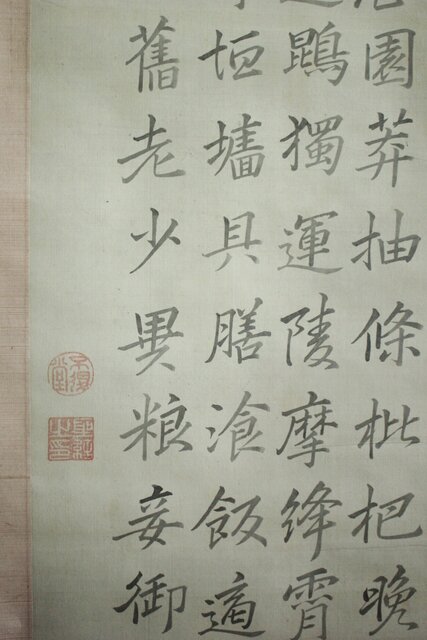 園莽抽條枇杷晚
鵾獨運陵摩絳霄
垣墻具膳飡飯適
舊老少異粮妾御